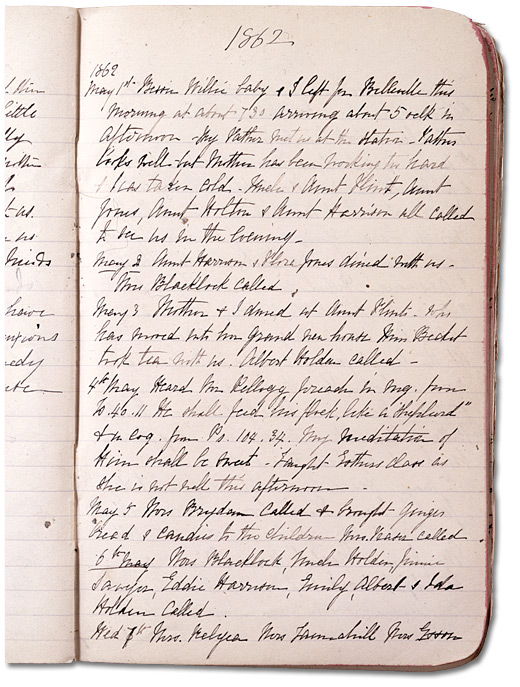 1862
1862
May 1st Bessie Willie baby & I left for Belleville this
morning at about 7.30 arriving about 5 oclk in
afternoon - My Father met us at the Station - Father
looks well but Mother has been working too hard
& has taken cold - Uncle & Aunt Flint, Aunt
Jones, Aunt Holton & Aunt Harrison all called
to see us in the Evening -
May 2 Aunt Harrison & Flora Jones dined with us -
Mrs Blacklock called
May 3 Mother & I dined at Aunt Flints - who
has moved into her grand new house Miss
took tea with us. Albert Holden called -
4th May Heard Mr Kellogg preach in mg. from
Is. 40.11 He shall feed his flock like a "Shepherd"
& in evg. from Ps. 104. 34. My meditation of
Him shall be sweet - Taught Esthers Class as
she is not well this afternoon
May 5 Mrs Brydon called & brought ginger
Bread & candies to the children Mrs called
6th May Mrs Blacklock, Uncle Holden, Jinnie
Sawyer Eddie Harrison, Emily, Albert & Ida
Holden called.
Wed 7th Mrs. Mrs Tannahill Mrs
little
us.
us
friends
have